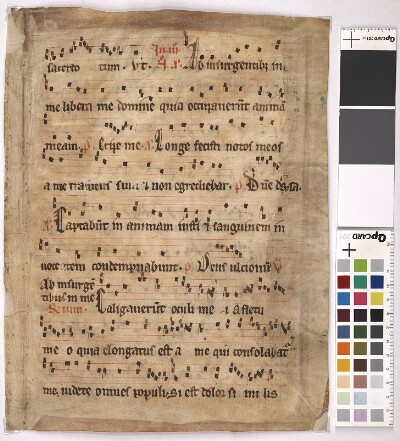 sacerdo tum. Vt. A. Ab insurgentibꝫ in
me libera me domine quia occupauerūt animā
meam. p. Eripe me. A. Longe fecisti notos meos
a me traditus sum ⁊ non egrediebar. p. Dn̄e ds̄ sa.
A. Captabūt in animam iusti ⁊ sanguinem in
nocentem condempnabunt. p. Deus ultionū V
Ab insurgē
tibus in me
Caligauerūt oculi me i a fletu
me o quia elongatus est a me qui consolabat᷑
me, uidete omnes populi, si est dolor si mi lis
QPCARD 201
QPCARD 201